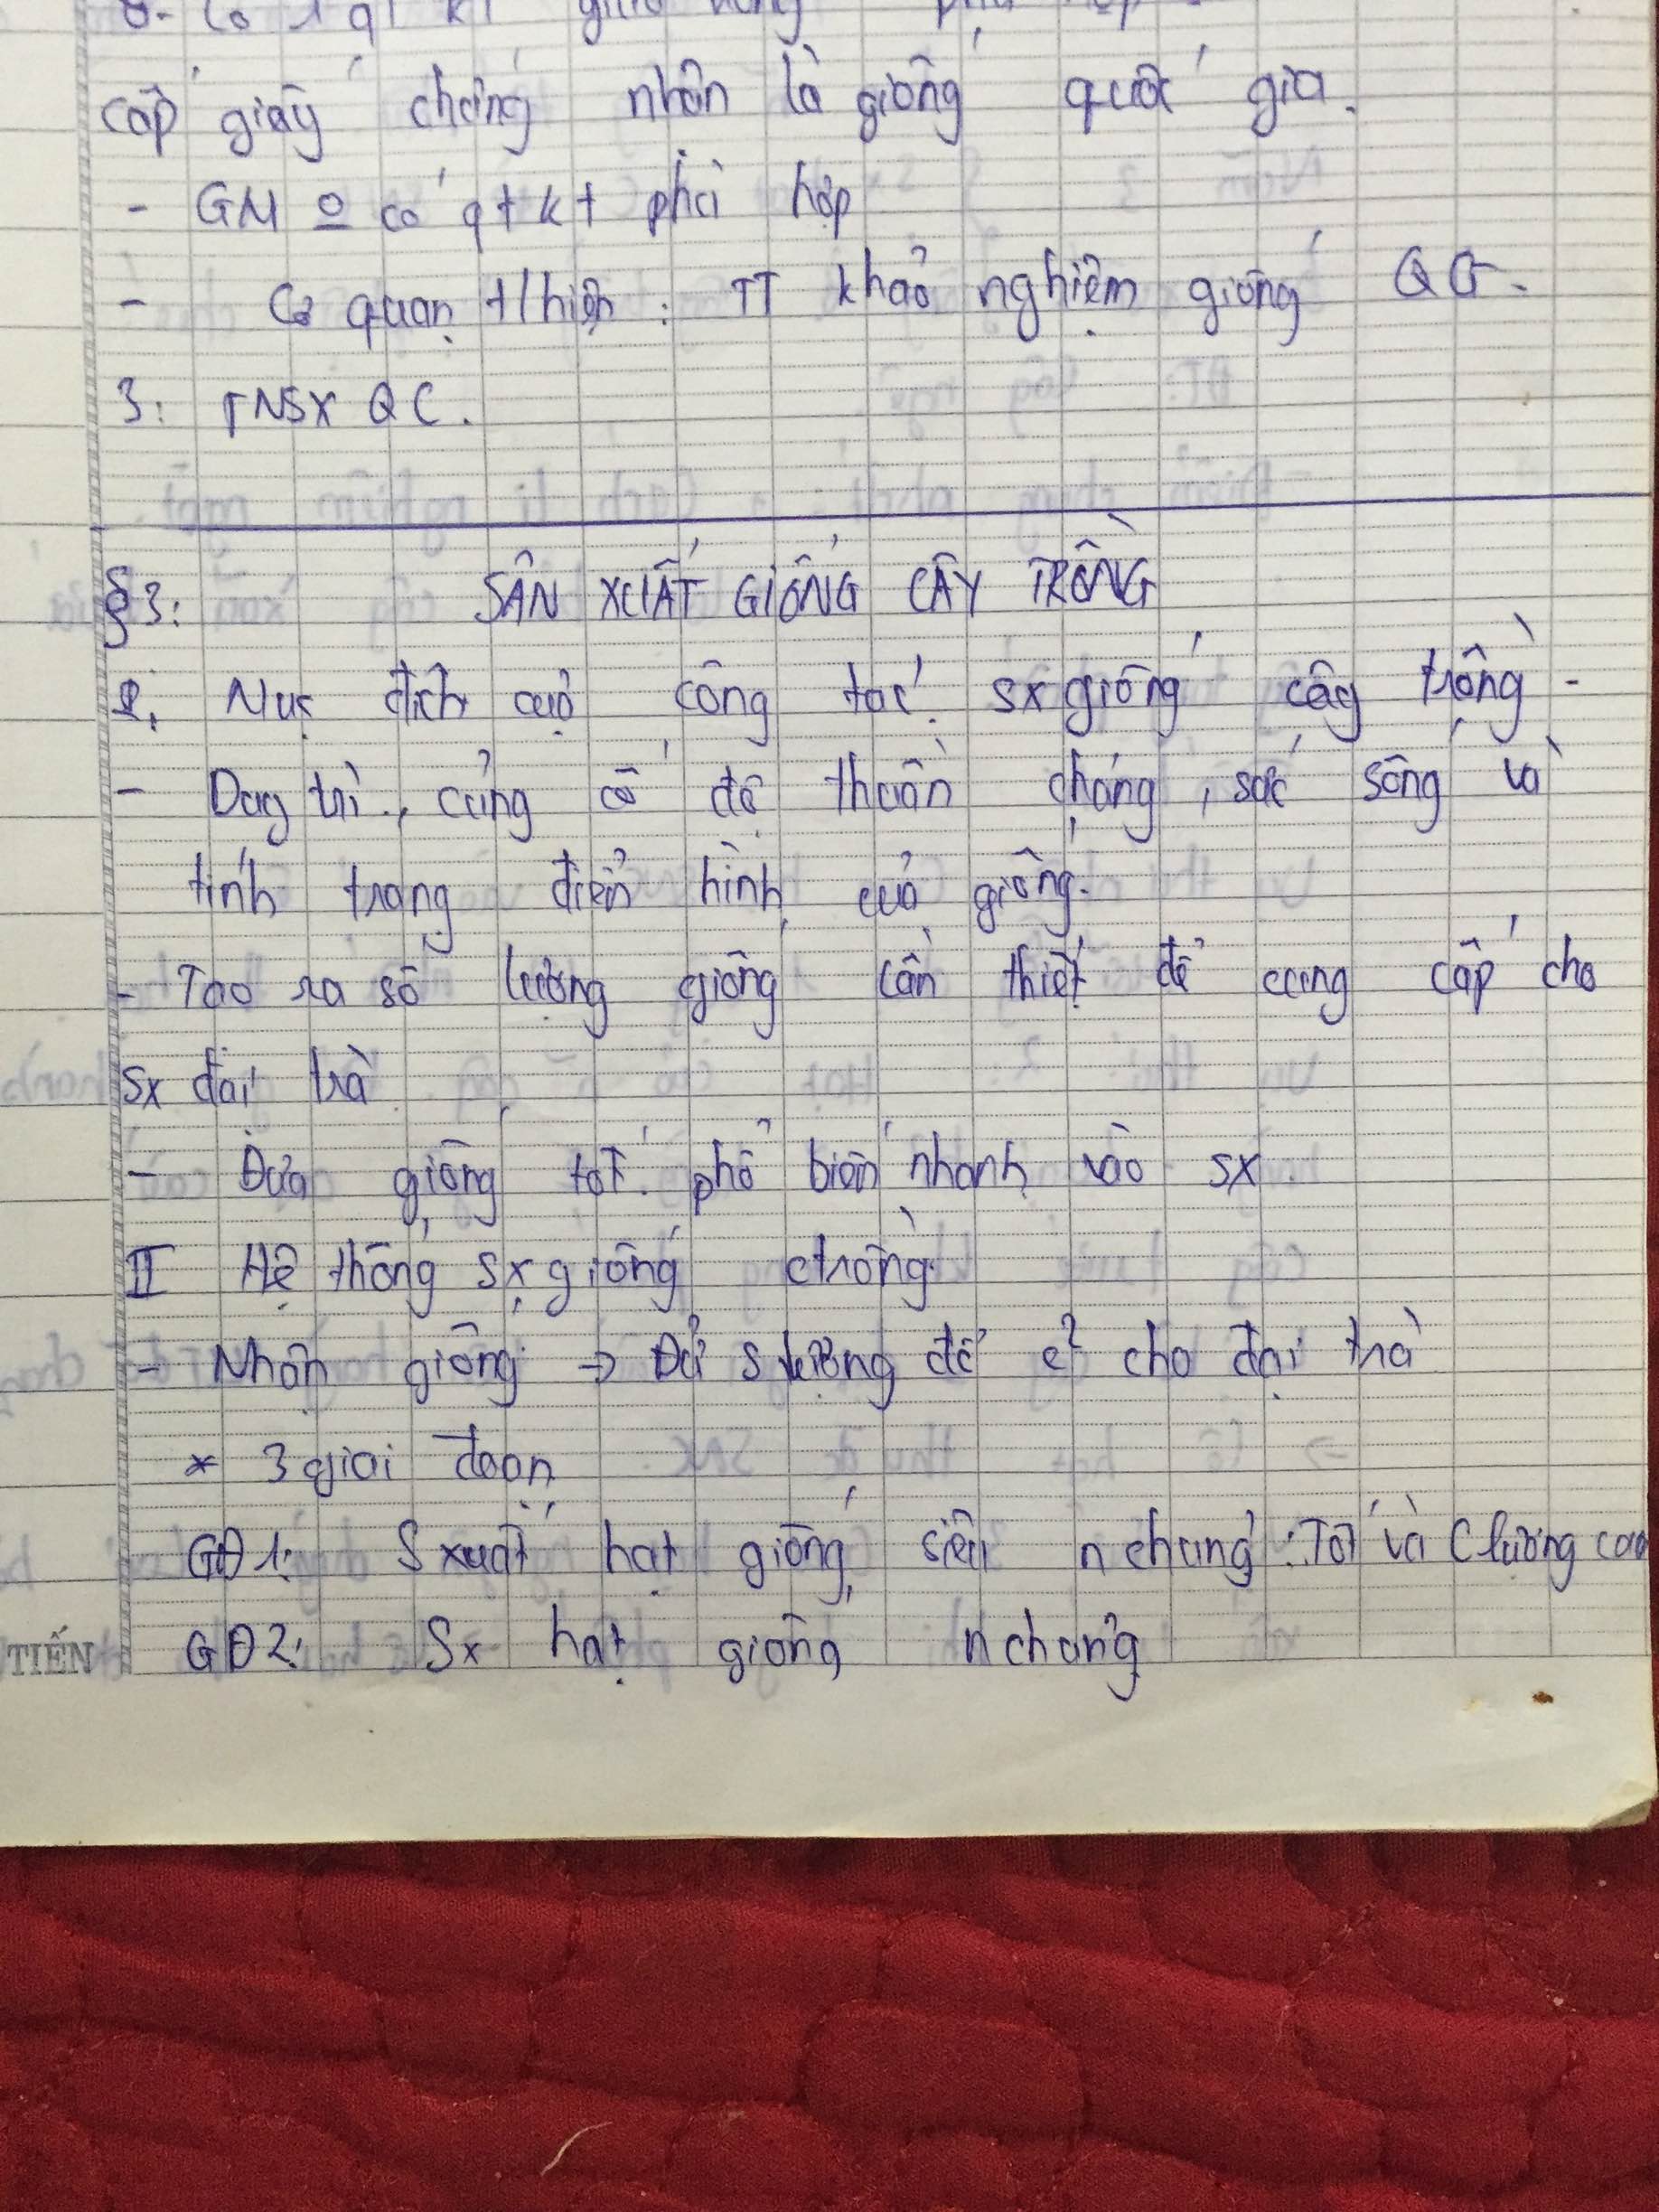 cấp giấy chứng nhận là giống quốc gia.
- GM o có qt kt phù hợp
- Cơ quan t/hiện : TT khảo nghiệm giống QG.
3: TNSX QC.
§3: SẢN XUẤT GIỐNG CÂY TRỒNG
I, Mục đích của công tác sx giống cây trồng -
- Duy trì, củng cố độ thuần chủng, sức sống và
tính trạng điển hình của giống.
- Tạo ra số lượng giống cần thiết để cung cấp cho
sx đại trà
- Đưa giống tốt phổ biến nhanh vào sx
II Hệ thống sx giống ctrồng.
- Nhân giống → Đủ slượng để c² cho đại trà
* 3 giai đoạn
GĐ1: Sxuất hạt giống siêu nchủng : Tốt và Clượng cao
GĐ2: Sx hạt giống nchủng
TIẾN